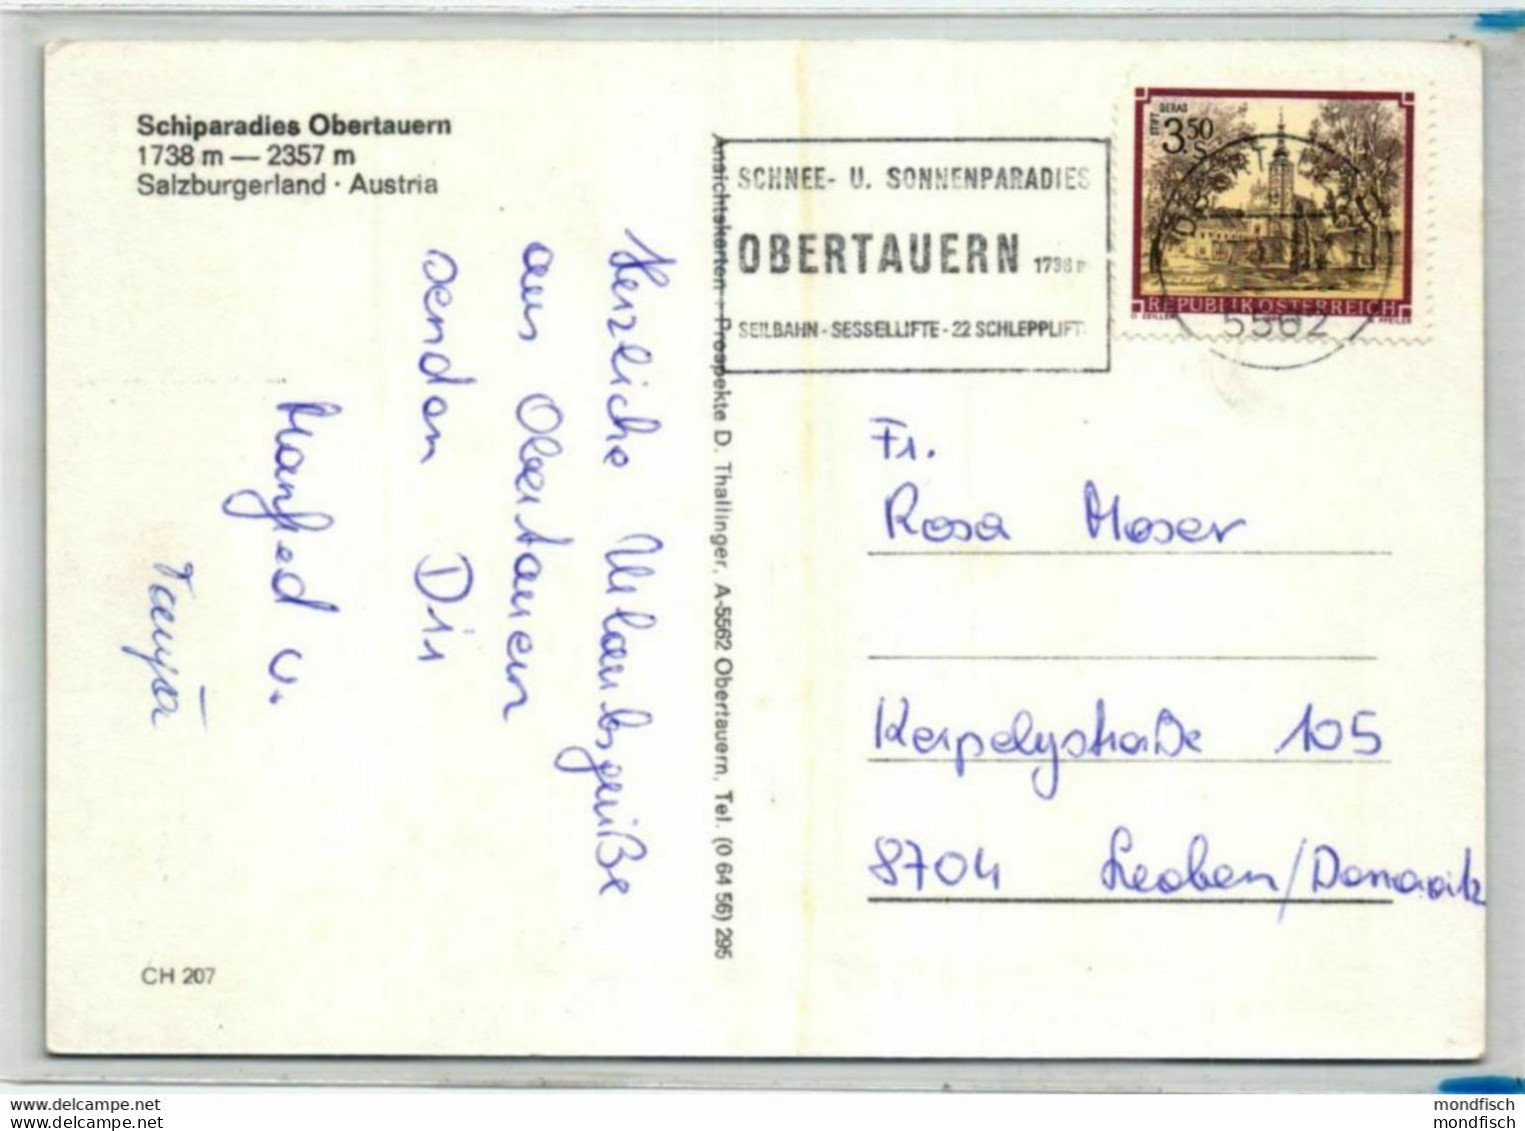 Schiparadies Obertauern
1738 m — 2357 m
Salzburgerland · Austria
Herzliche Urlaubsgrüße
aus Obertauern
senden Dir
Manfred u.
Tanja
CH 207
Ansichtskarten + Prospekte D. Thallinger, A-5562 Obertauern, Tel. (0 64 56) 295
SCHNEE- U. SONNENPARADIES
OBERTAUERN 1738 m
SEILBAHN - SESSELLIFTE - 22 SCHLEPPLIFTE
STIFT GERAS
3.50
S
REPUBLIK ÖSTERREICH
O. ZEILLER
PFEILER
5562
Fr.
Rosa Moser
Kerpelystraße 105
8704 Leoben/Donawitz
mondfisch
mondfisch
mondfisch
mondfisch